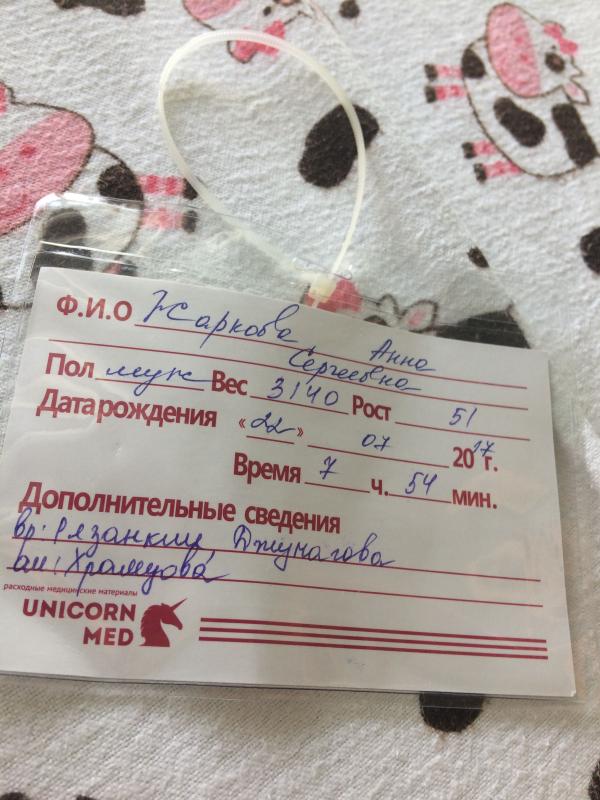 Ф.И.О Жаркова Анна
Сергеевна
Пол муж Вес 3140 Рост 51
Дата рождения «22» 07 2017 г.
Время 7 ч. 54 мин.
Дополнительные сведения
Вр: Рязанкин, Джунагова
ак: Храмцова
расходные медицинские материалы
UNICORN
MED